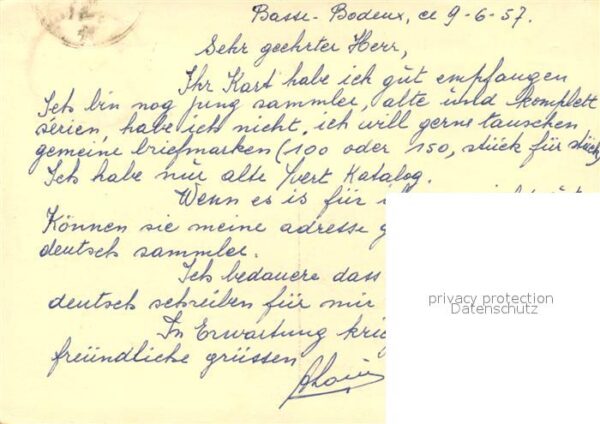 Basse-Bodeux, ce 9-6-57.
Sehr geehrter Herr,
Ihr Kart habe ich gut empfangen
Ich bin nog jung sammler, alte und komplett
sérien, habe ich nicht, ich will gerne tauschen
gemeine briefmarken (100 oder 150, stück für stück)
Ich habe nur alte Yvert Katalog.
Wenn es is für
Können sie meine adresse
deutsch sammler.
Ich bedauere dass
deutsch schreiben für mir
privacy protection
Datenschutz
In Erwartung
freündliche grüssen